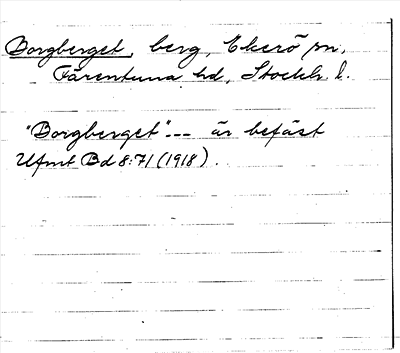 Borgberget, berg, Ekerö sn,
Färentuna hd, Stockh. l.
"Borgberget" --- är befäst
Ufmt Bd 8:71 (1918).